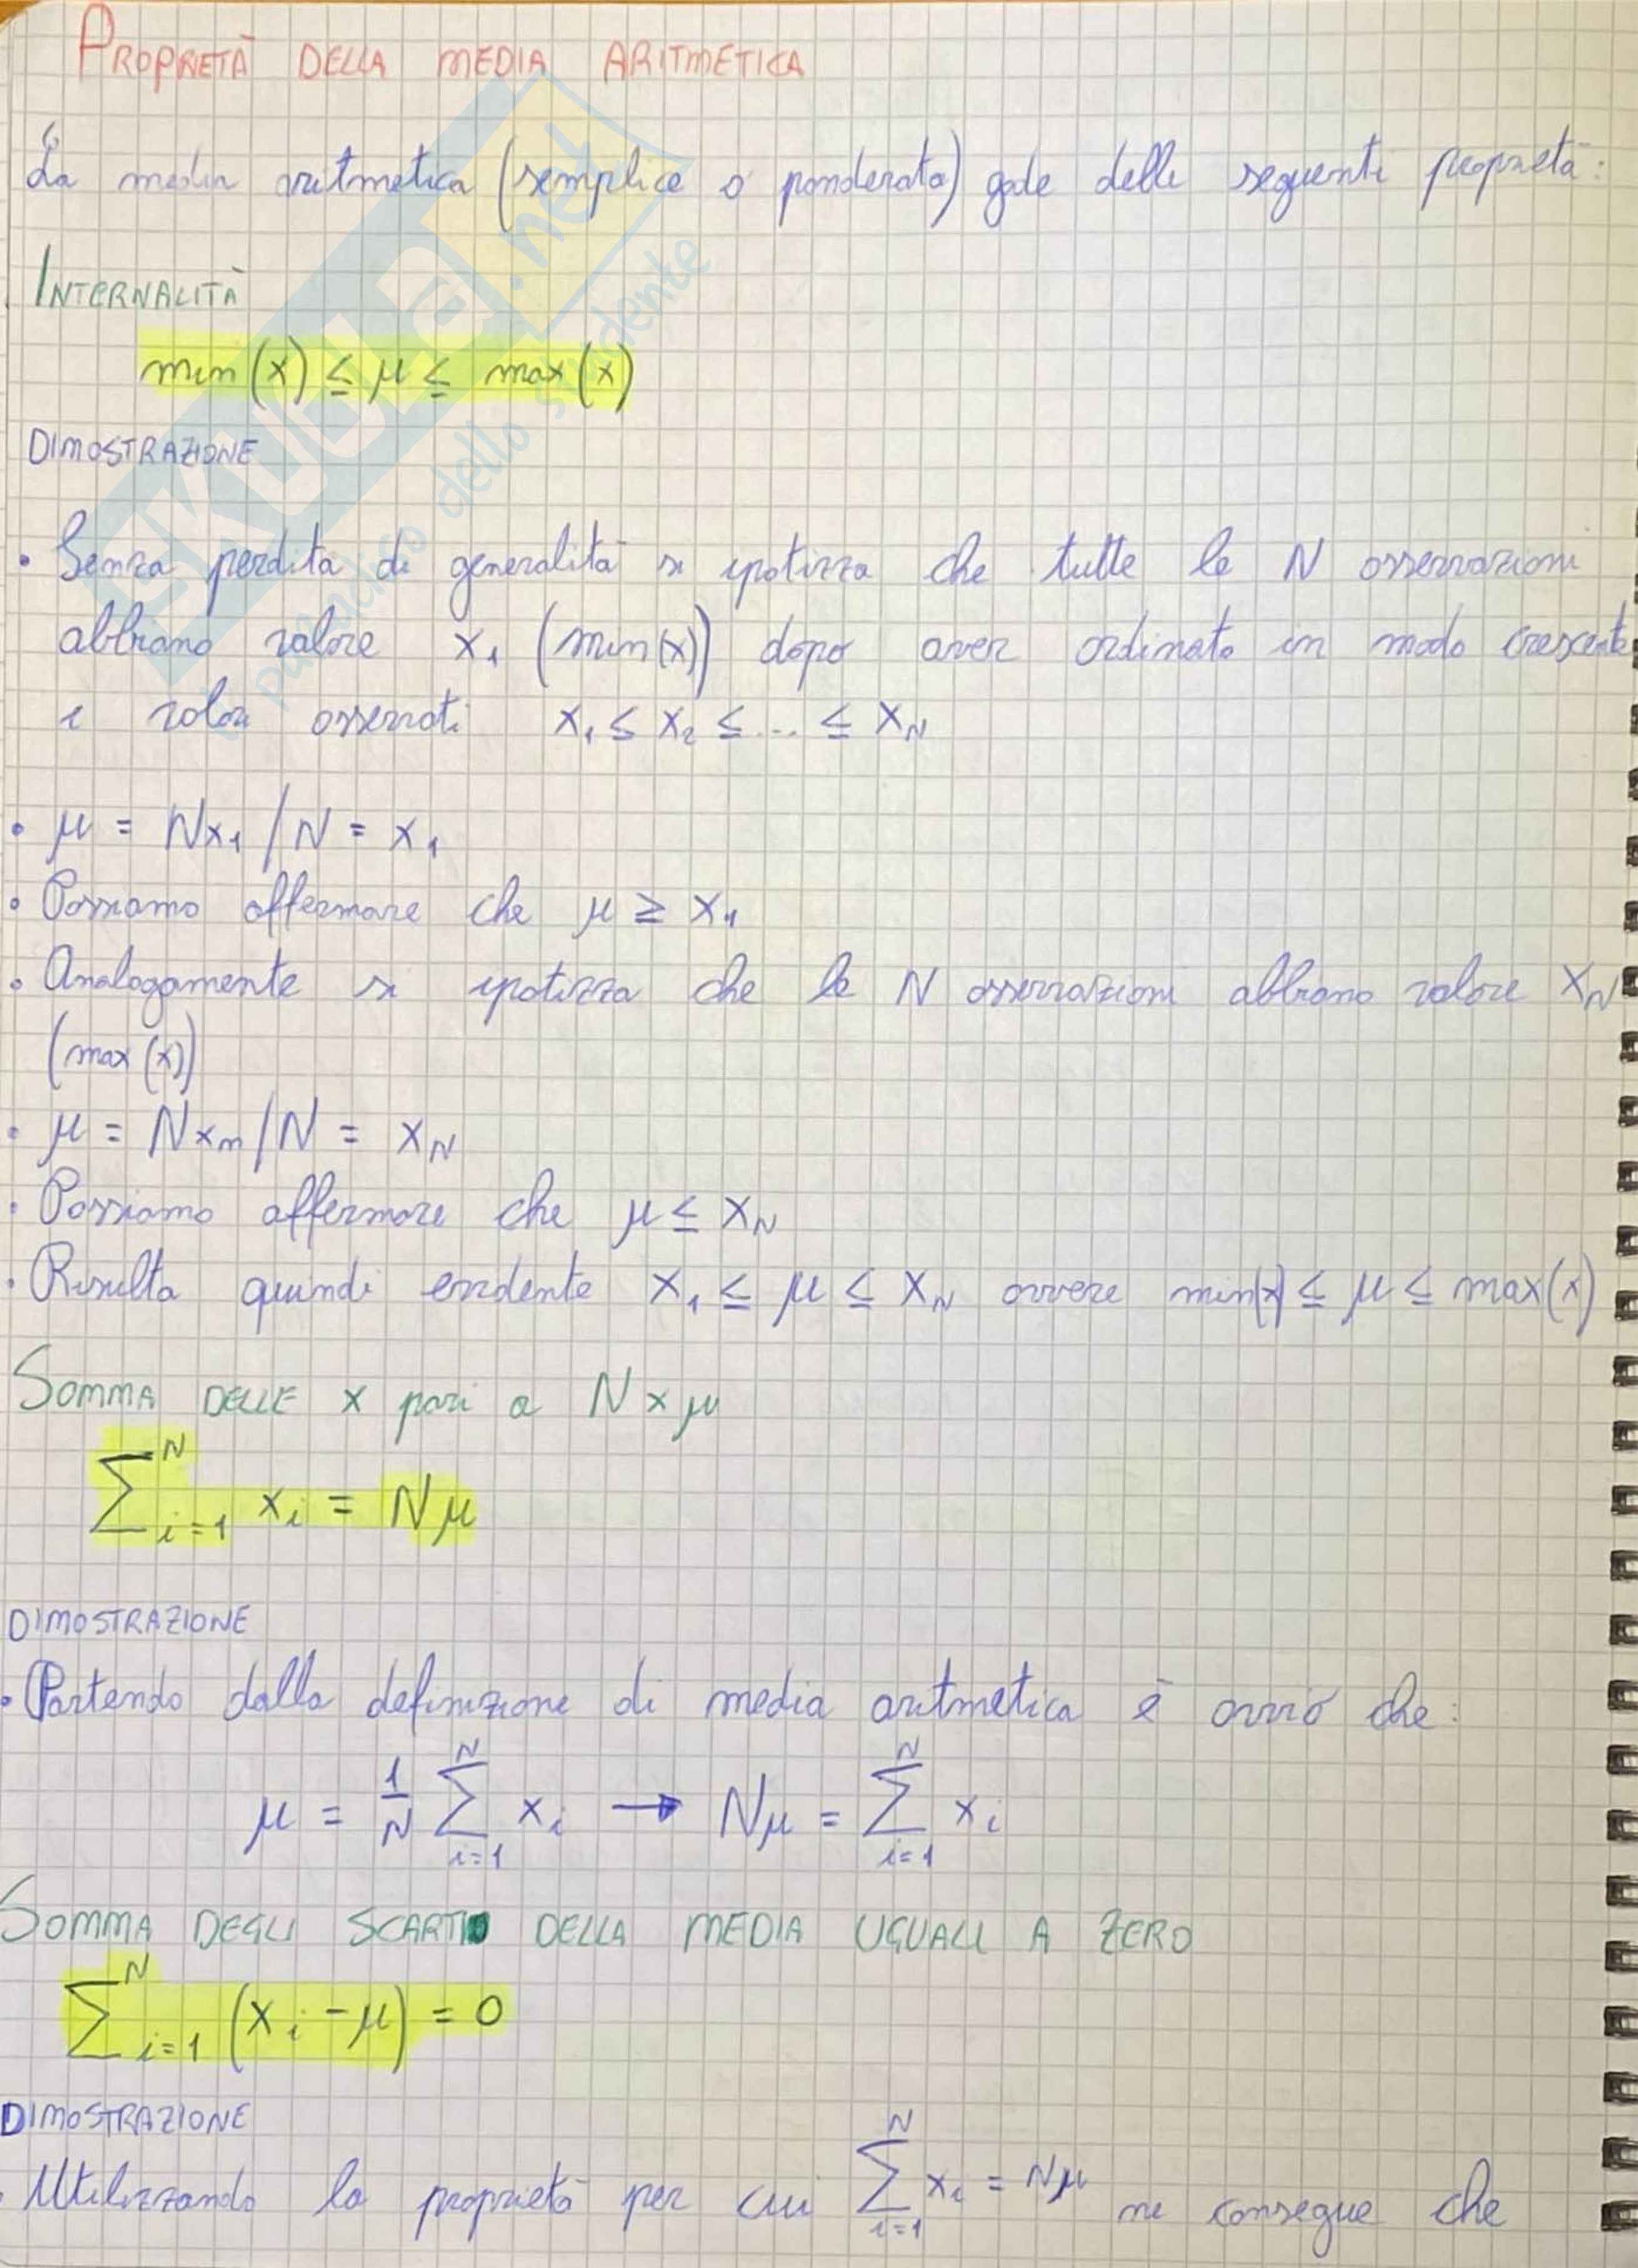 PROPRIETÀ DELLA MEDIA ARITMETICA
La media aritmetica (semplice o ponderata) gode delle seguenti proprietà:
INTERNALITÀ
min(x) ≤ μ ≤ max(x)
DIMOSTRAZIONE
• Senza perdita di generalità si ipotizza che tutte le N osservazioni
abbiano valore x₁ (min(x)) dopo aver ordinato in modo crescente
i valori osservati x₁ ≤ x₂ ≤ ... ≤ x_N
• μ = Nx₁/N = x₁
• Possiamo affermare che μ ≥ x₁
• Analogamente si ipotizza che le N osservazioni abbiano valore x_N
(max(x))
• μ = Nxₙ/N = x_N
• Possiamo affermare che μ ≤ x_N
• Risulta quindi evidente x₁ ≤ μ ≤ x_N ovvero min(x) ≤ μ ≤ max(x)
SOMMA DELLE x pari a N × μ
∑ᴺᵢ₌₁ xᵢ = Nμ
DIMOSTRAZIONE
• Partendo dalla definizione di media aritmetica è ovvio che:
μ = 1/N ∑ᴺᵢ₌₁ xᵢ → Nμ = ∑ᴺᵢ₌₁ xᵢ
SOMMA DEGLI SCARTI DELLA MEDIA UGUALI A ZERO
∑ᴺᵢ₌₁ (xᵢ - μ) = 0
DIMOSTRAZIONE
• Utilizzando la proprietà per cui ∑ᴺᵢ₌₁ xᵢ = Nμ ne consegue che
SKUOLA.net
il paradiso dello studente